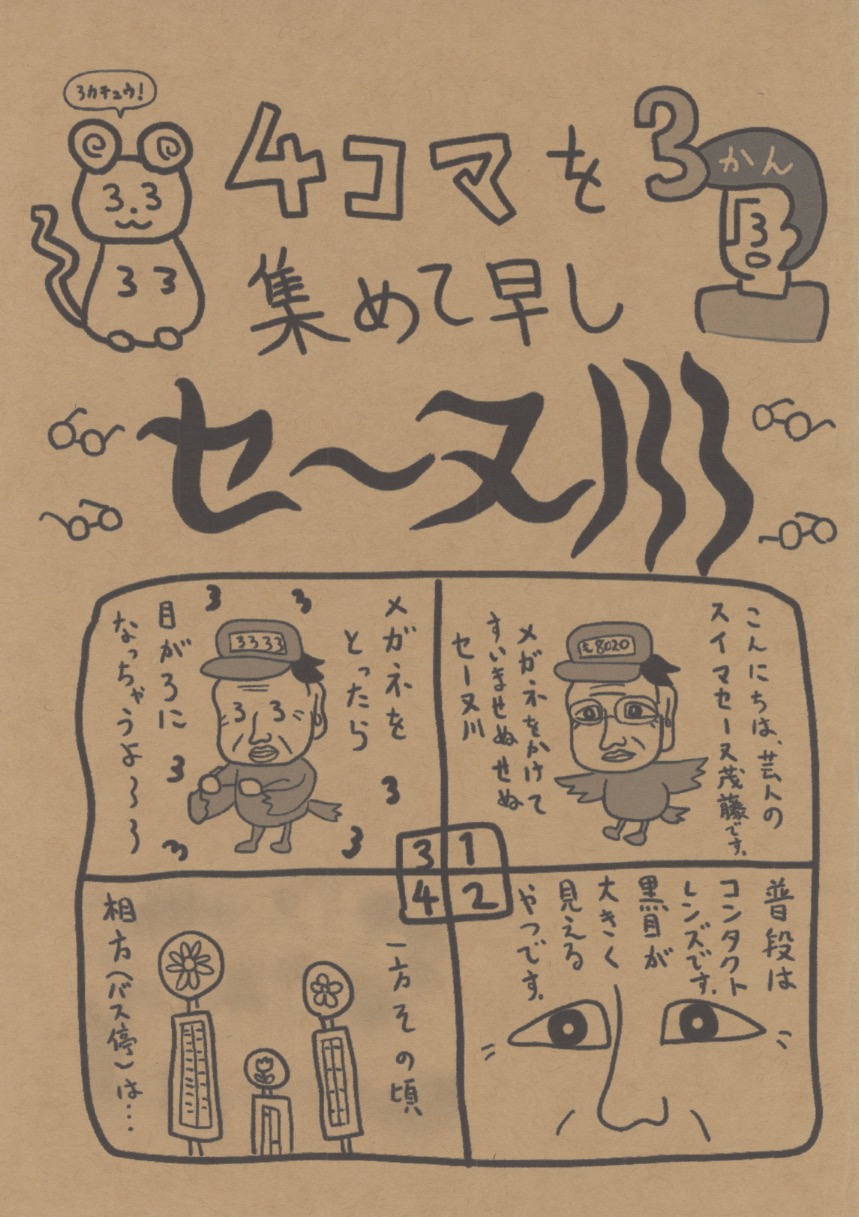 3カチュウ!
4コマを3
かん
集めて早し
セーヌ川
33
33
3
も8020
こんにちは、芸人の
スイマセーヌ茂藤です。
メガネをかけて
すいませぬせぬ
セーヌ川
1
普段は
コンタクト
レンズです。
黒目が
大きく
見える
やつです。
2
3333
メガネを
とったら
目がろに
なっちゃうよ〜〜
33
3
3
3
3
3
3
3
一方その頃
相方(バス停)は…
4